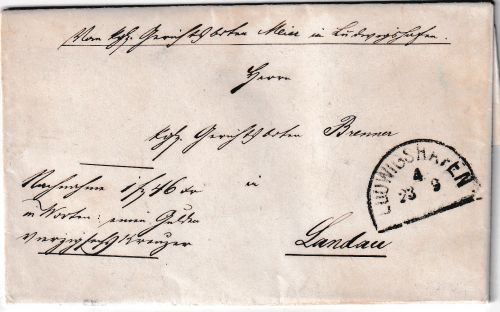 Vom kgl. Gerichtsboten Meier in Ludwigshafen.
Herrn
kgl. Gerichtsboten Brenner
in
Landau
Nachnahme 1 f 46 Xr
in Worten: einen Gulden
vierzigsechs Kreuzer
LUDWIGSHAFEN
4
23 9